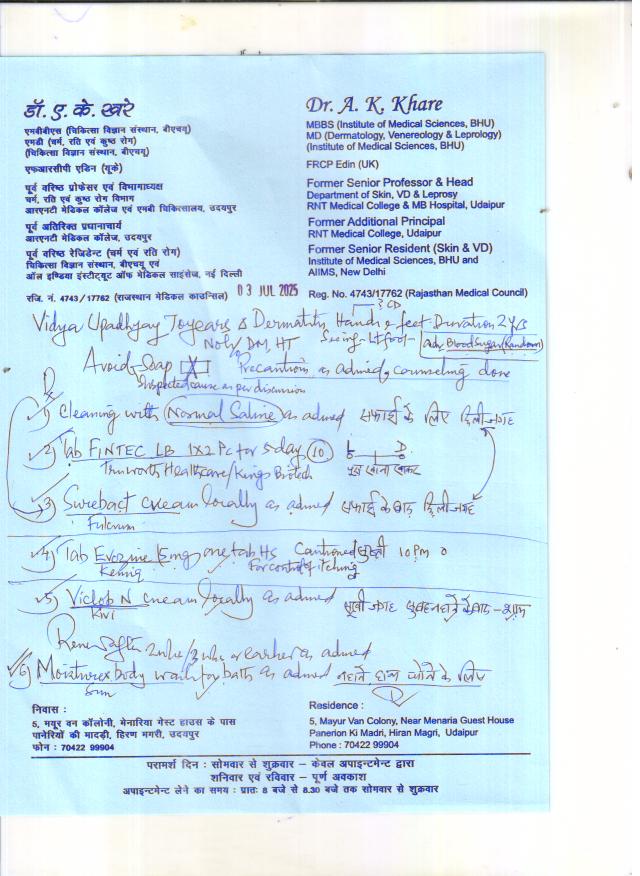 डॉ. ए. के. खरे
एमबीबीएस (चिकित्सा विज्ञान संस्थान, बीएचयू)
एमडी (चर्म, रति एवं कुष्ठ रोग)
(चिकित्सा विज्ञान संस्थान, बीएचयू)
एफआरसीपी एडिन (यूके)
पूर्व वरिष्ठ प्रोफेसर एवं विभागाध्यक्ष
चर्म, रति एवं कुष्ठ रोग विभाग
आरएनटी मेडिकल कॉलेज एवं एमबी चिकित्सालय, उदयपुर
पूर्व अतिरिक्त प्रधानाचार्य
आरएनटी मेडिकल कॉलेज, उदयपुर
पूर्व वरिष्ठ रेजिडेन्ट (चर्म एवं रति रोग)
चिकित्सा विज्ञान संस्थान, बीएचयू एवं
ऑल इण्डिया इंस्टीट्यूट ऑफ मेडिकल साइंसेज, नई दिल्ली
रजि. नं. 4743/17762 (राजस्थान मेडिकल काउन्सिल)
Dr. A. K. Khare
MBBS (Institute of Medical Sciences, BHU)
MD (Dermatology, Venereology & Leprology)
(Institute of Medical Sciences, BHU)
FRCP Edin (UK)
Former Senior Professor & Head
Department of Skin, VD & Leprosy
RNT Medical College & MB Hospital, Udaipur
Former Additional Principal
RNT Medical College, Udaipur
Former Senior Resident (Skin & VD)
Institute of Medical Sciences, BHU and
AIIMS, New Delhi
Reg. No. 4743/17762 (Rajasthan Medical Council)
03 JUL 2025
? CD
Vidya Upadhyay 70years Dermatitis Hands & feet Duration 2 yrs
No h/o DM, HT Adv Blood Sugar (Random)
Avoid-Soap Precaution as advised, counseling done
Suspected cause as per discussion
1) Cleaning with Normal Saline as advised सफाई के लिए
2) Tab FINTEC LB 1x2 Pc for 5 day (10)
Truworth Healthcare/Kings Biotech
3) Surebact cream locally as advised सफाई के बाद
Fulcrum
4) Tab 5mg one tab HS Cautioned 10 PM
For control of itching
5) Viclob N cream locally as advised
Kivi
6) Moisturex body wash for bath as advised नहाने हाथ धोने के लिए
Sun
निवास :
5, मयूर वन कॉलोनी, मेनारिया गेस्ट हाउस के पास
पानेरियों की मादड़ी, हिरण मगरी, उदयपुर
फोन : 70422 99904
Residence :
5, Mayur Van Colony, Near Menaria Guest House
Panerion Ki Madri, Hiran Magri, Udaipur
Phone : 70422 99904
परामर्श दिन : सोमवार से शुक्रवार – केवल अपाइन्टमेन्ट द्वारा
शनिवार एवं रविवार – पूर्ण अवकाश
अपाइन्टमेन्ट लेने का समय : प्रातः 8 बजे से 8.30 बजे तक सोमवार से शुक्रवार